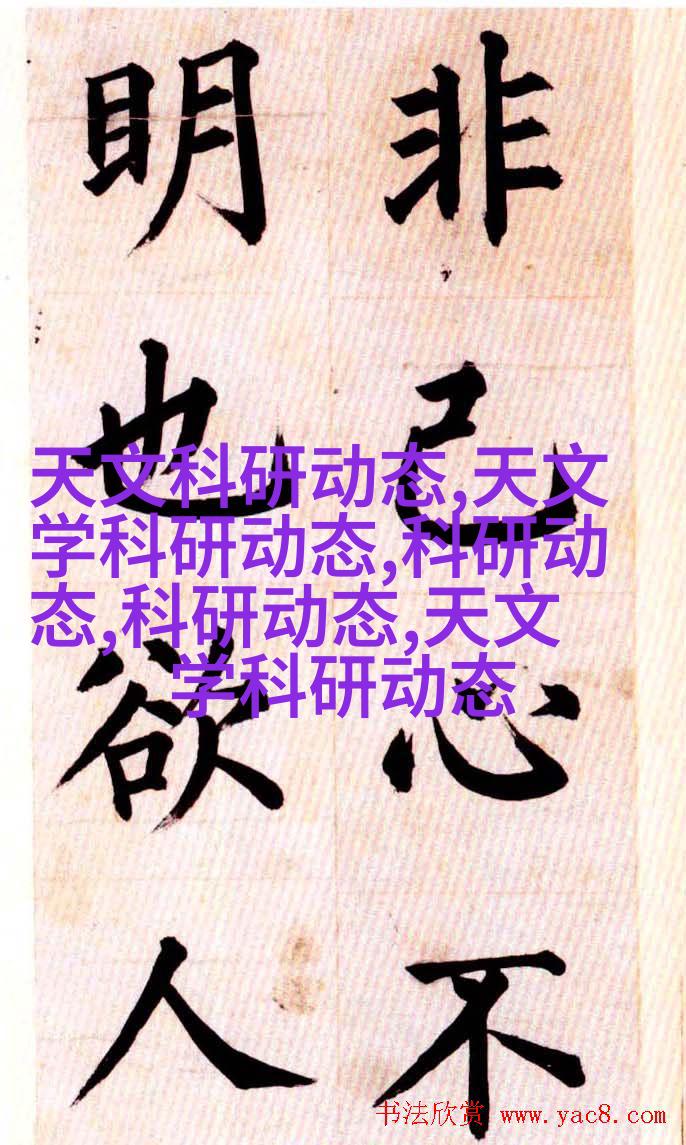 非己心不
明也欲人
天文科研动态,天文
学科研动态,科研动
态,科研动态,天文
学科研动态
书法欣赏 www.yac8.com